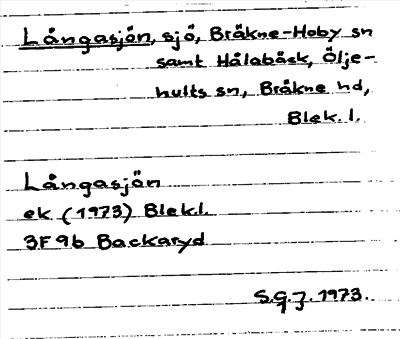 Långasjön, sjö, Bräkne-Hoby sn
samt Hålabäck, Ölje-
hults sn, Bräkne hd,
Blek. l.
Långasjön
ek (1973) Blek.l.
3F 9b Backaryd
S.G.J. 1973.